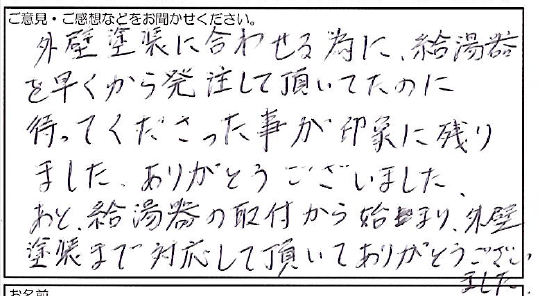 ご意見・ご感想などをお聞かせください。
外壁塗装に合わせる為に、給湯器
を早くから発注して頂いてたのに
待ってくださった事が印象に残り
ました、ありがとうございました、
あと、給湯器の取付から始まり、外壁
塗装まで対応して頂いてありがとうござい
ました、
お名前